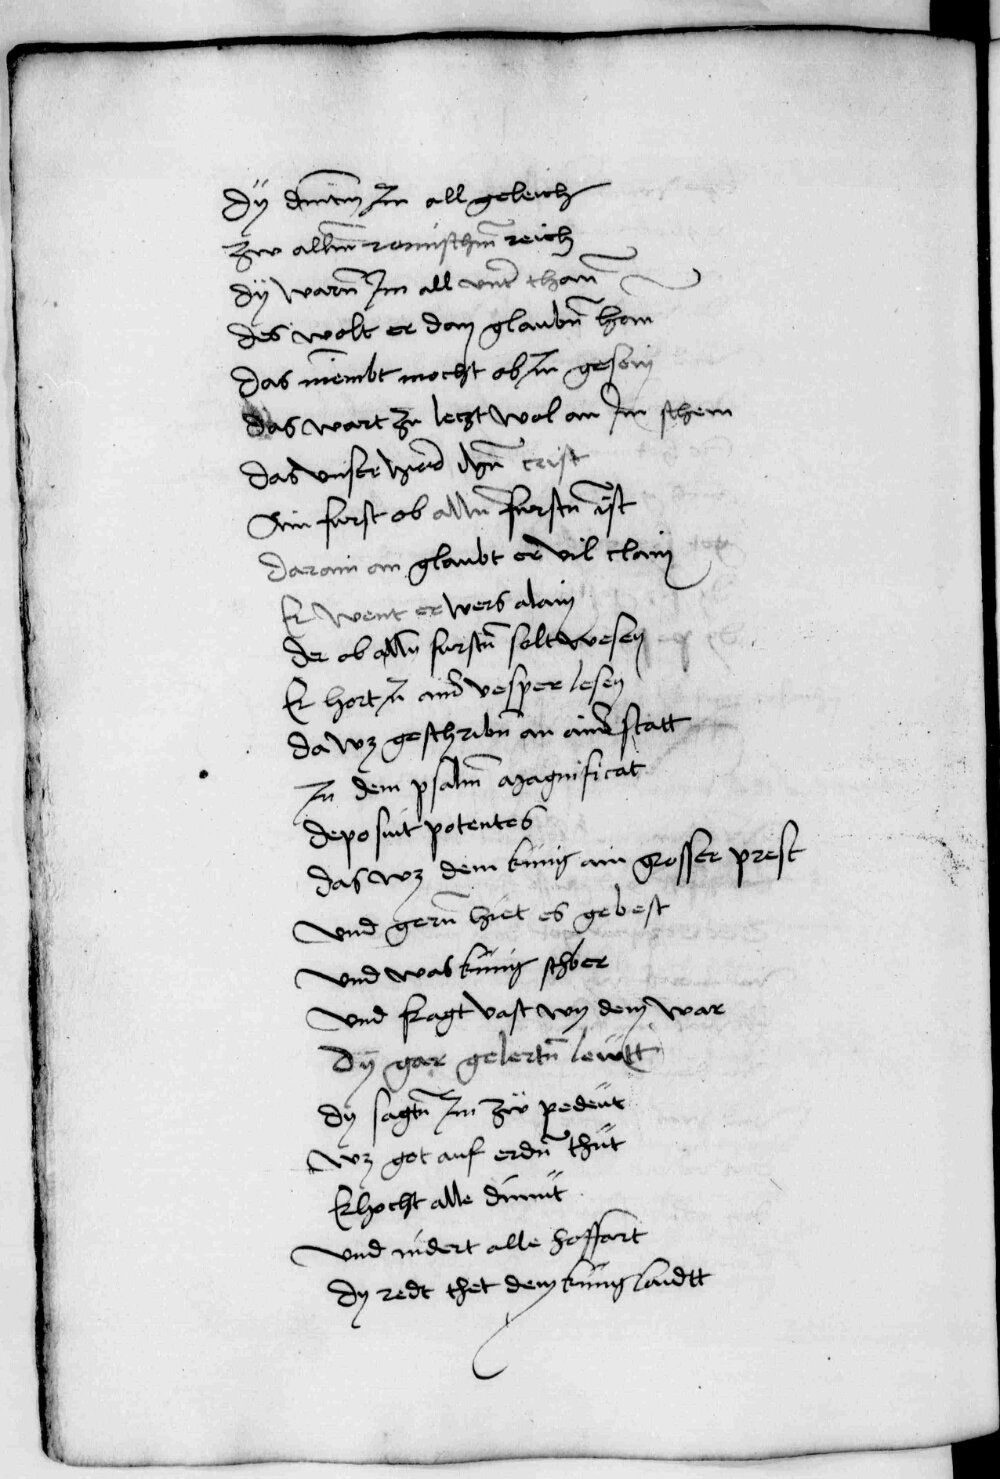 dÿ dintn̄ Im all geleich
zw allm̄ romischn̄ reich
dÿ warn̄ Im all vnt̄ than̄
des wolt er dem glaubn̄ hon
das niembt mocht ob Im gesein
das wart zu letzt wol an Im schein
das vnser herr crist
Ain furst ob alln̄ furstn̄ ist
daran an glaubt er vil clain
Er went er wers alain
der ob alln̄ furstn̄ solt wesen
Er hort In ainer vesper lesen
da wz geschribn̄ an ainer statt
In dem psalm̄ magnificat
deposuit potentes
das wz dem künig ain grosser prest
vnd gern̄ hiet es gebest
vnd was künig schber
vnd fragt vast wy dem war
Dÿ gar gelertn̄ lewtt
dy sagtn̄ Im zw pedeut
wz got auf erdn̄ thüt
Erhocht alle dimüt
vnd nidert alle hoffart
dy redt thet dem künig landtt